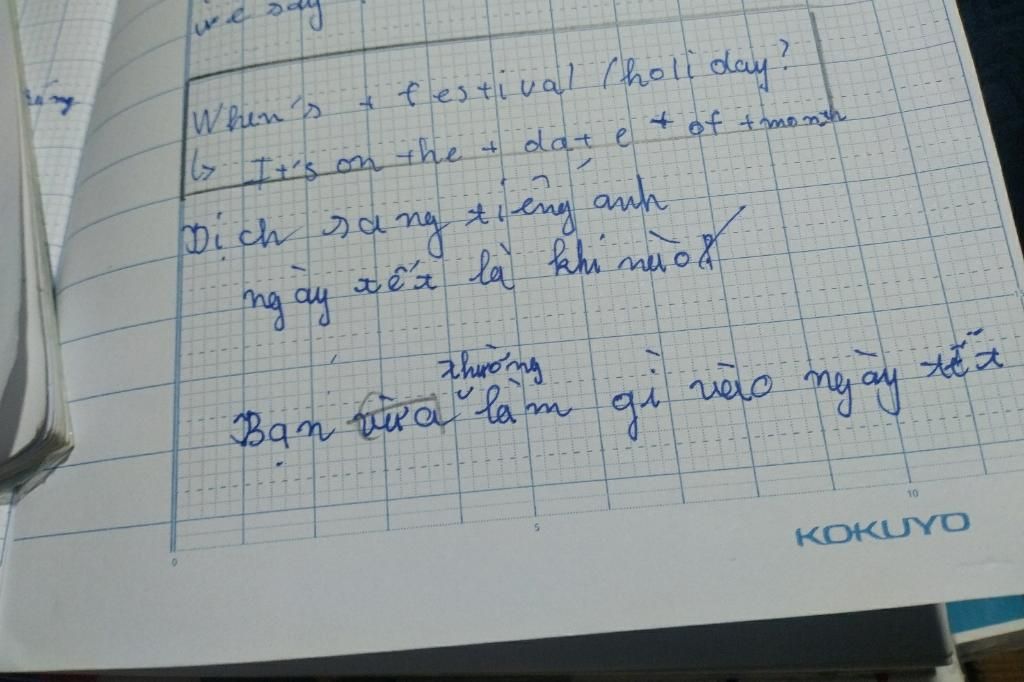 we say
When's + festival / holiday?
↳ It's on the + date + of + month
Dịch sang tiếng anh
ngày tết là khi nào?
thường
Bạn vừa làm gì vào ngày tết
0 5 10
KOKUYO